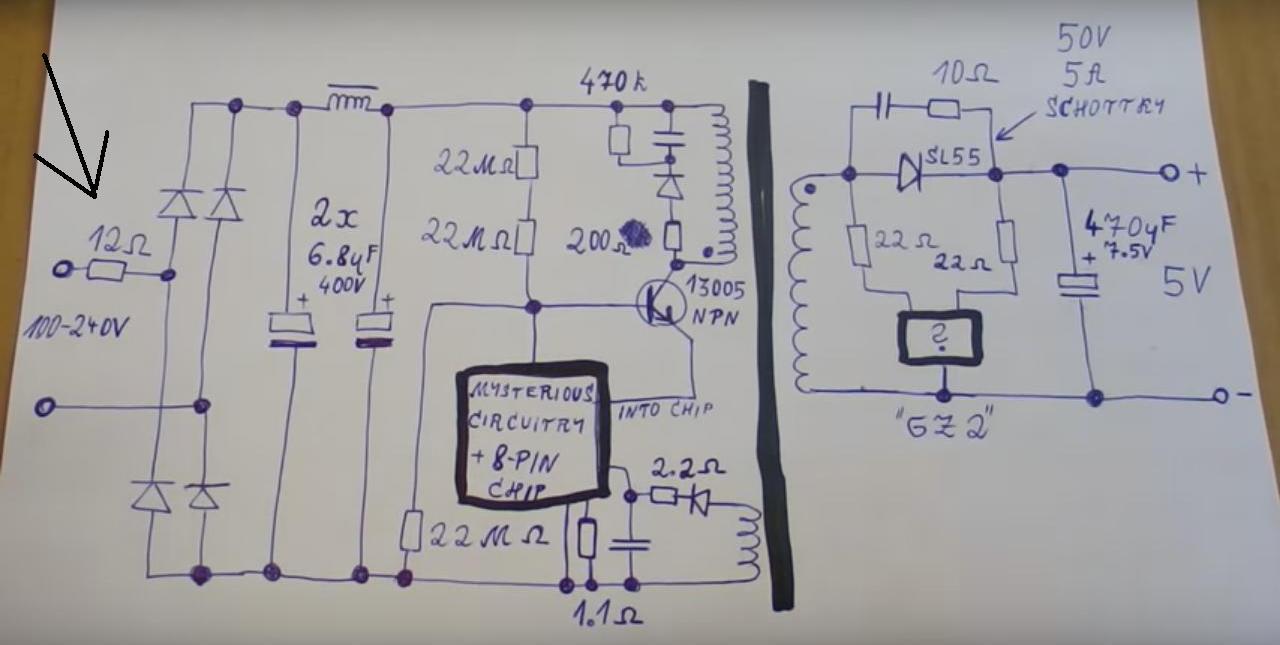 470k
10Ω
50V
5A
SCHOTTKY
22MΩ
SL55
12Ω
2x
6.8µF
400V
22MΩ
200Ω
22Ω
22Ω
470µF
7.5V
5V
100-240V
13005
NPN
?
MYSTERIOUS
CIRCUITRY
+ 8-PIN
CHIP
INTO CHIP
"GZ2"
2.2Ω
22MΩ
1.1Ω
+
-
+
+
+